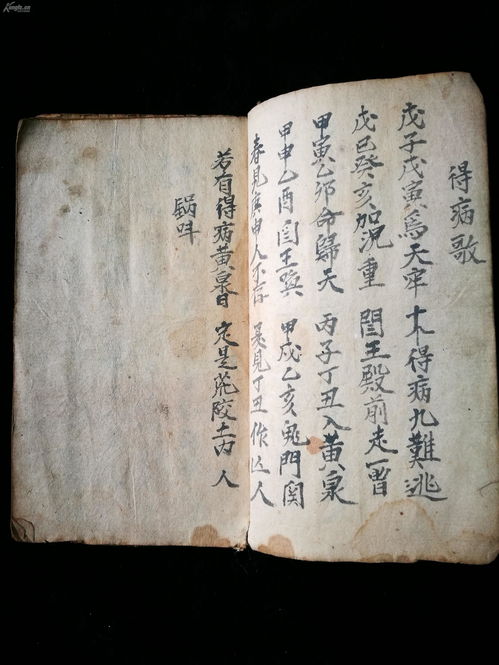 得病歌
戊子戊寅為天牢 得病九難逃
戊巳癸亥加況重 閻王殿前走一曹
甲寅乙卯命歸天 丙子丁丑入黃泉
甲申乙酉閻王 甲戌乙亥鬼門関
春見庚申人不存 見丁丑作亡人
若有得病黃泉日 定是荒陵土内人